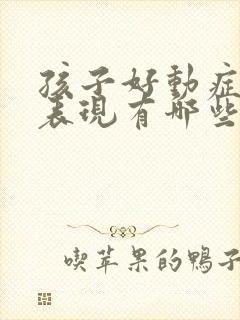 孩子好動症
表現有哪些
喫苹果的鴨子